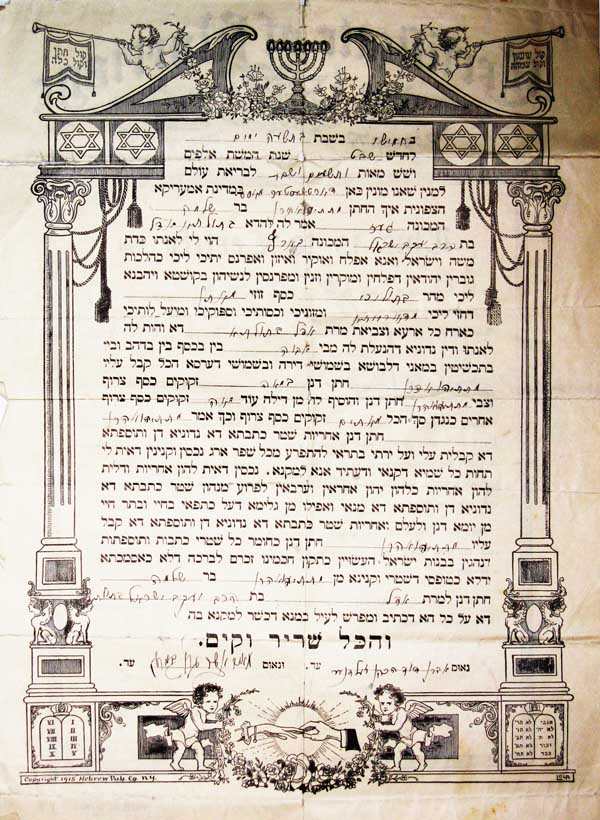 קול חתן
וקול כלה
קול ששון
וקול שמחה
בחמישי בשבת בתשעה ימים
לחדש שבט שנת חמשת אלפים
ושש מאות ותשעים ושבע לבריאת עולם
למנין שאנו מונין כאן במדינת אמעריקא
הצפונית איך החתן בר שלמה
המכונה אמר לה להדא
בת המכונה הוי לי לאנתו כדת
משה וישראל ואנא אפלח ואוקיר ואיזון ואפרנס יתיכי ליכי כהלכות
גוברין יהודאין דפלחין ומוקרין וזנין ומפרנסין לנשיהון בקושטא ויהבנא
ליכי מהר בתוליכי כסף זוזי מאתן
דחזי ליכי ומזוניכי וכסותיכי וסיפוקיכי ומיעל לותיכי
כארח כל ארעא וצביאת מרת אדל בתולתא דא והות לה
לאנתו ודין נדוניא דהנעלת לה מבי אבוה בין בכסף בין בדהב ובין
בתכשיטין במאני דלבושא בשמושי דירה ובשמושי דערסא הכל קבל עליו
חתן דנן במאה זקוקים כסף צרוף
וצבי חתן דנן והוסיף לה מן דילה עוד מאה זקוקים כסף צרוף
אחרים כנגדן סך הכל מאתים זקוקים כסף צרוף וכך אמר
חתן דנן אחריות שטר כתבתא דא נדוניא דן ותוספתא
דא קבלית עלי ועל ירתי בתראי להתפרע מכל שפר ארג נכסין וקנינין דאית לי
תחות כל שמיא דקנאי ודעתיד אנא למקנא. נכסין דאית להון אחריות ודלית
להון אחריות כלהון יהון אחראין וערבאין לפרוע מנהון שטר כתבתא דא
נדוניא דן ותוספתא דא מנאי ואפילו מן גלימא דעל כתפאי בחיי ובתר חיי
מן יומא דנן ולעלם ואחריות שטר כתבתא דא נדוניא דן ותוספתא דא קבל
עליו חתן דנן כחומר כל שטרי כתבות ותוספתות
דנהגין בבנות ישראל העשויין כתקון חכמינו זכרם לברכה דלא כאסמכתא
ודלא כטופסי דשטרי וקנינא מן בר שלמה
חתן דנן למרת אדל בת הרב יעקב ישראל בתולתא
דא על כל הא דכתיב ומפרש לעיל במנא דכשר למקנא בה
והכל שריר וקים.
נאום אהרן דוד הכהן עד. ונאום עד.
VI I
VII II
VIII III
IX IV
X V
אנכי לא תר'
לא יה' לא תנ'
לא ת' לא תג'
זכור לא תע'
כבד לא תח'
Copyright 1915 Hebrew Pub. Co. N.Y.